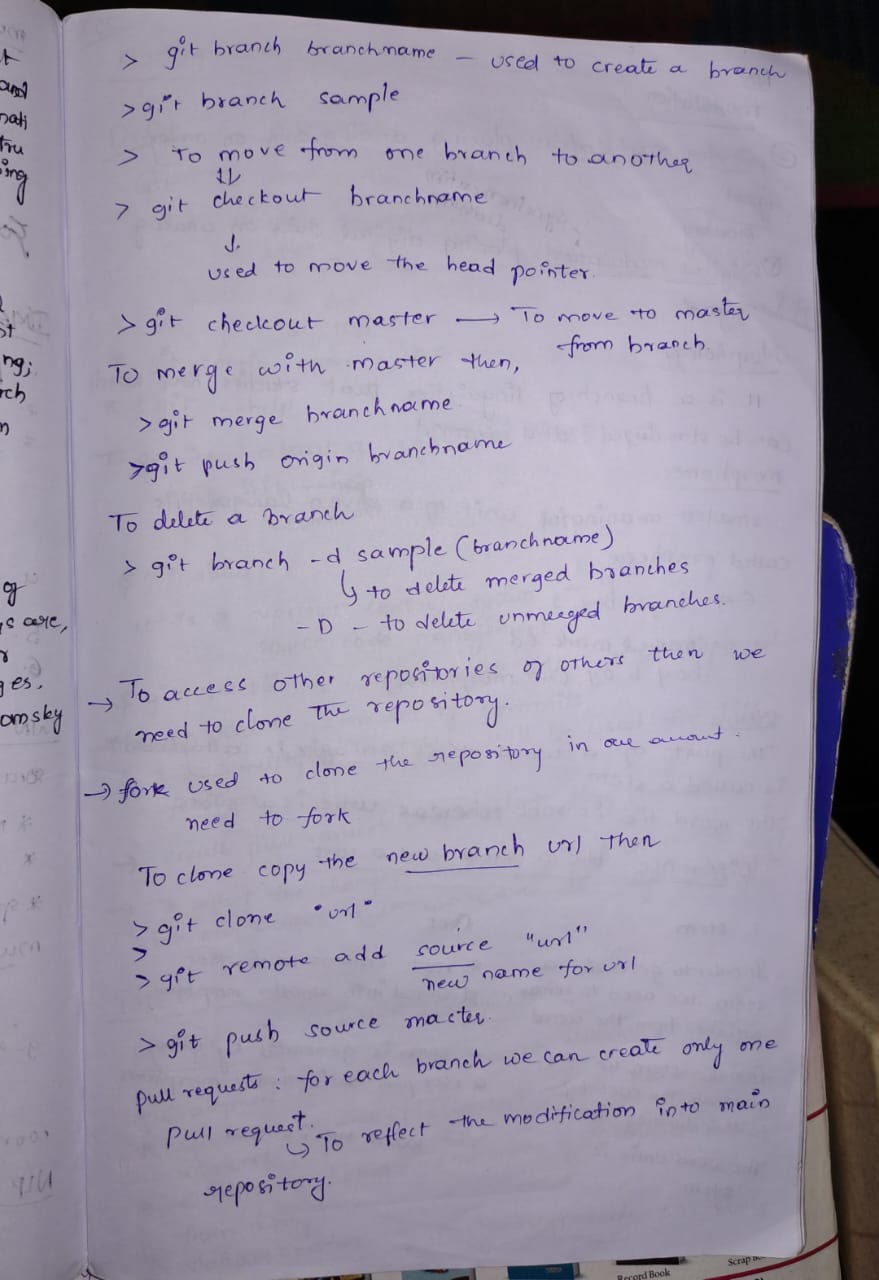 > git branch branchname – used to create a branch
> git branch sample
> To move from one branch to another
> git checkout branchname
used to move the head pointer.
> git checkout master → To move to master
from branch.
To merge with master then,
> git merge branchname
> git push origin branchname
To delete a branch
> git branch -d sample (branchname)
↳ to delete merged branches
- D - to delete unmerged branches.
→ To access other repositories of others then we
need to clone the repository.
→ fork used to clone the repository in our
need to fork
To clone copy the new branch url then
> git clone "url"
>
> git remote add source "url"
new name for url
> git push source master.
Pull requests : for each branch we can create only one
pull request.
↳ To reflect the modification into main
repository.
omsky
Record Book